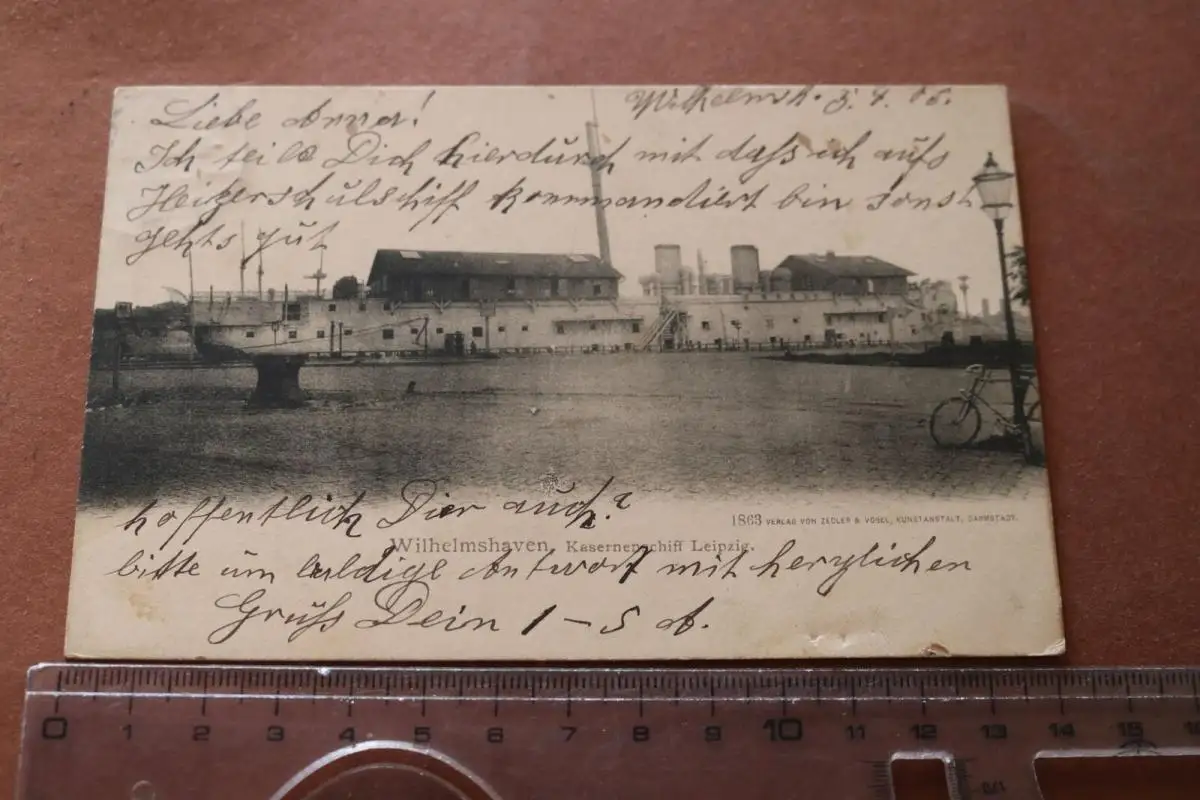 Wilhelmsh. 3.4.05.
Liebe Anna!
Ich teile Dich hierdurch mit daß ich aufs
Heizerschulschiff kommandiert bin sonst
gehts gut
hoffentlich Dier auch?
1863 VERLAG VON ZEDLER & VOGEL, KUNSTANSTALT, DARMSTADT.
Wilhelmshaven, Kasernenschiff Leipzig.
bitte um baldige Antwort mit herzlichen
Grüß Dein 1-5 A.
0 1 2 3 4 5 6 7 8 9 10 11 12 13 14 15